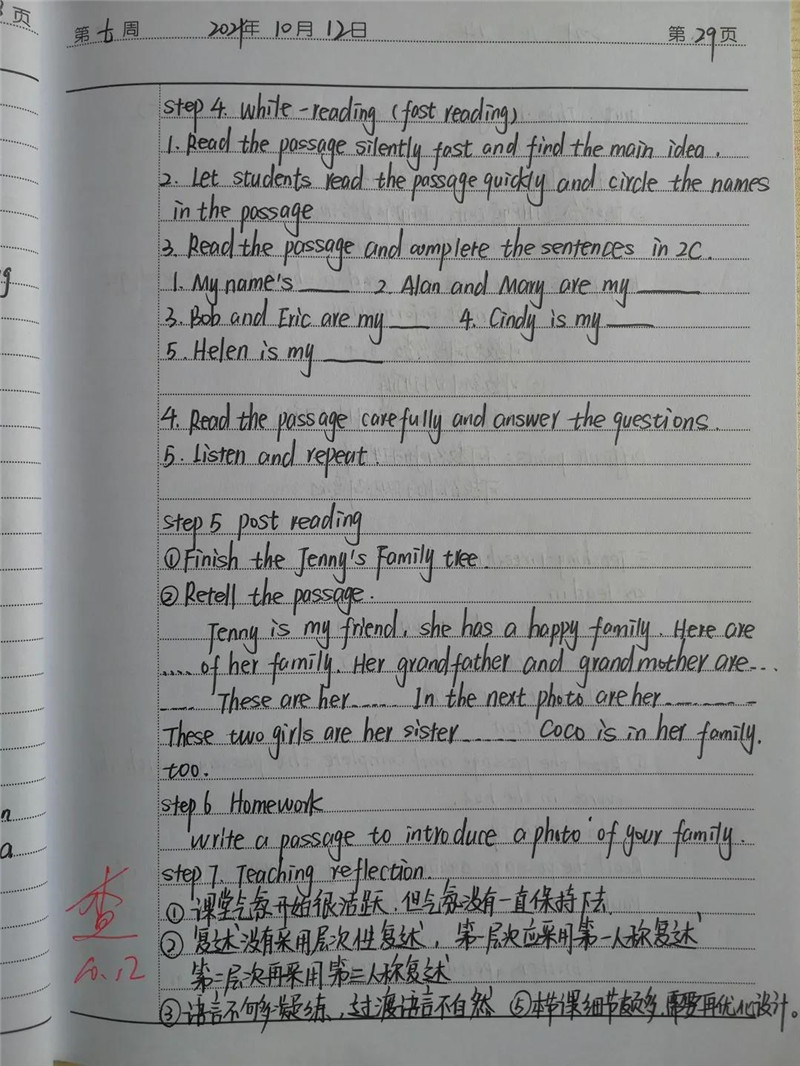 页
第七周 2021年 10月 12日 第29页
step 4. while-reading (fast reading)
1. Read the passage silently fast and find the main idea.
2. Let students read the passage quickly and circle the names
in the passage
3. Read the passage and complete the sentences in 2C.
1. My name's ____ 2. Alan and Mary are my ____
3. Bob and Eric are my ____ 4. Cindy is my ____
5. Helen is my ____
4. Read the passage carefully and answer the questions.
5. Listen and repeat.
step 5 post reading
①Finish the Jenny's Family tree.
②Retell the passage.
Jenny is my friend, she has a happy family. Here are
.... of her family. Her grandfather and grandmother are...
.... These are her ...... In the next photo are her ........
These two girls are her sister ...... Coco is in her family.
too.
step 6 Homework
write a passage to introduce a photo of your family.
step 7. Teaching reflection.
①课堂气氛开始很活跃,但气氛没有一直保持下去
②复述没有采用层次性复述,第一层次应采用第一人称复述
第二层次再采用第三人称复述
③语言不够凝练、过渡语言不自然 ⑤本节课细节较多,需要再优化设计。
查
10.12
g
n
a